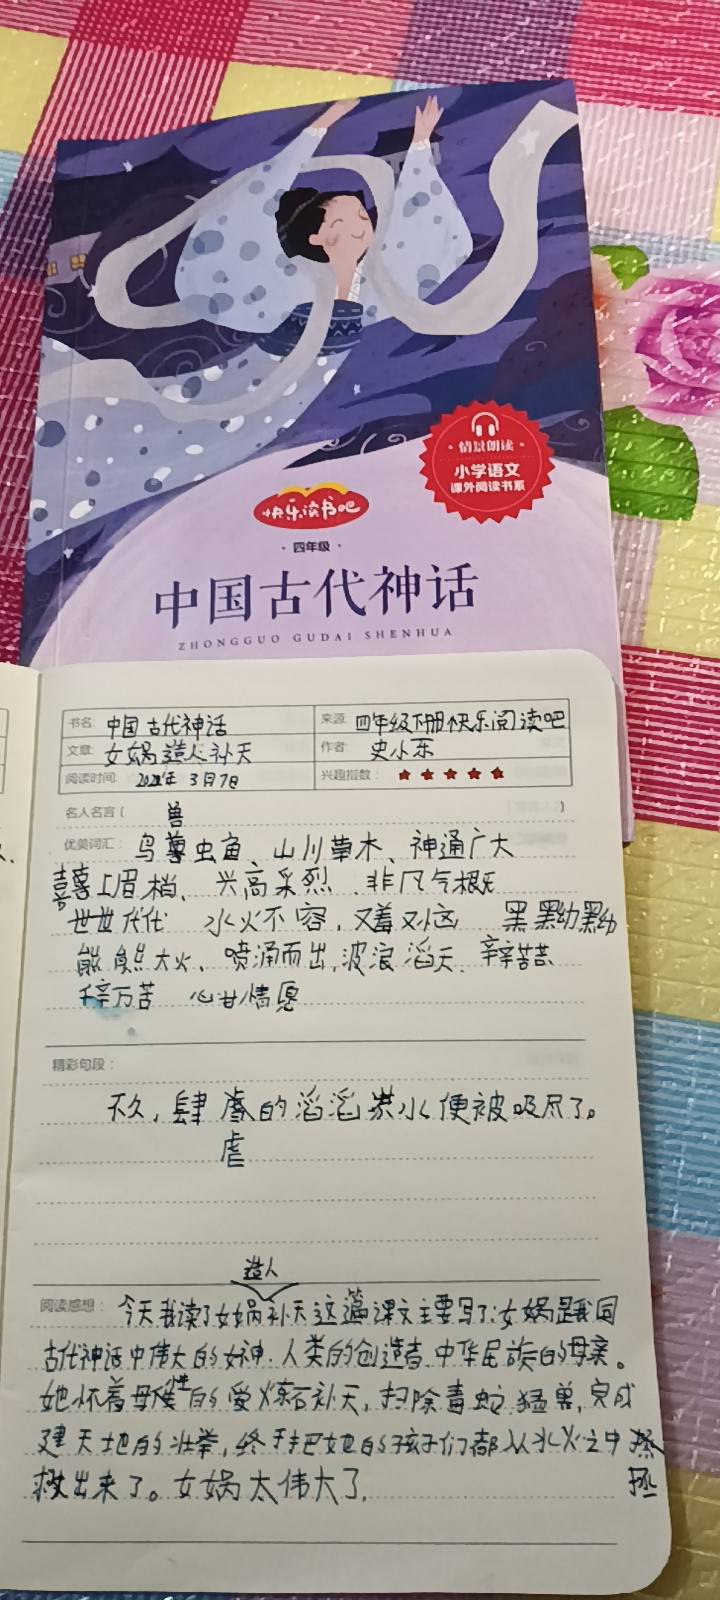 情景朗读
小学语文
课外阅读书系
快乐读书吧
·四年级·
中国古代神话
ZHONGGUO GUDAI SHENHUA
书名: 中国古代神话 来源: 四年级下册快乐阅读吧
文章: 女娲造人补天 作者: 史小东
阅读时间: 3月7日 兴趣指数: ★★★★★
名人名言( 兽 )
优美词汇: 鸟兽虫鱼、山川草木、神通广大
喜上眉梢、兴高采烈、非凡气概
世世代代 水火不容,又羞又恼 黑黝黝
熊熊大火、喷涌而出,波浪滔天、辛辛苦苦
千辛万苦 心甘情愿
精彩句段:
不久,肆虐的滔滔洪水便被吸尽了。
虐
造人
阅读感想: 今天我读了女娲补天这篇课文主要写了:女娲是我国
古代神话中伟大的女神、人类的创造者、中华民族的母亲。
她怀着母性的爱炼石补天,扫除毒蛇猛兽,完成
建天地的壮举,终于把她的孩子们都从水火之中拯
救出来了。女娲太伟大了.
拯